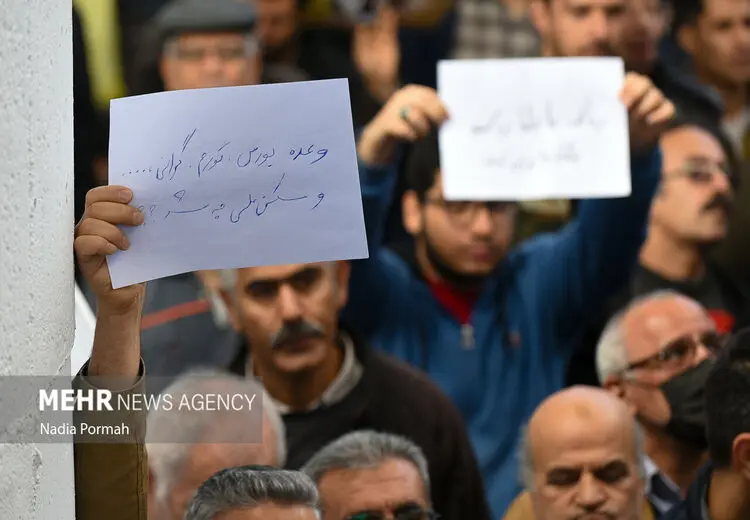 وعده بورس، تورم، گرانی.....
و مسکن ملی چه شد؟؟
MEHR NEWS AGENCY
Nadia Pormah